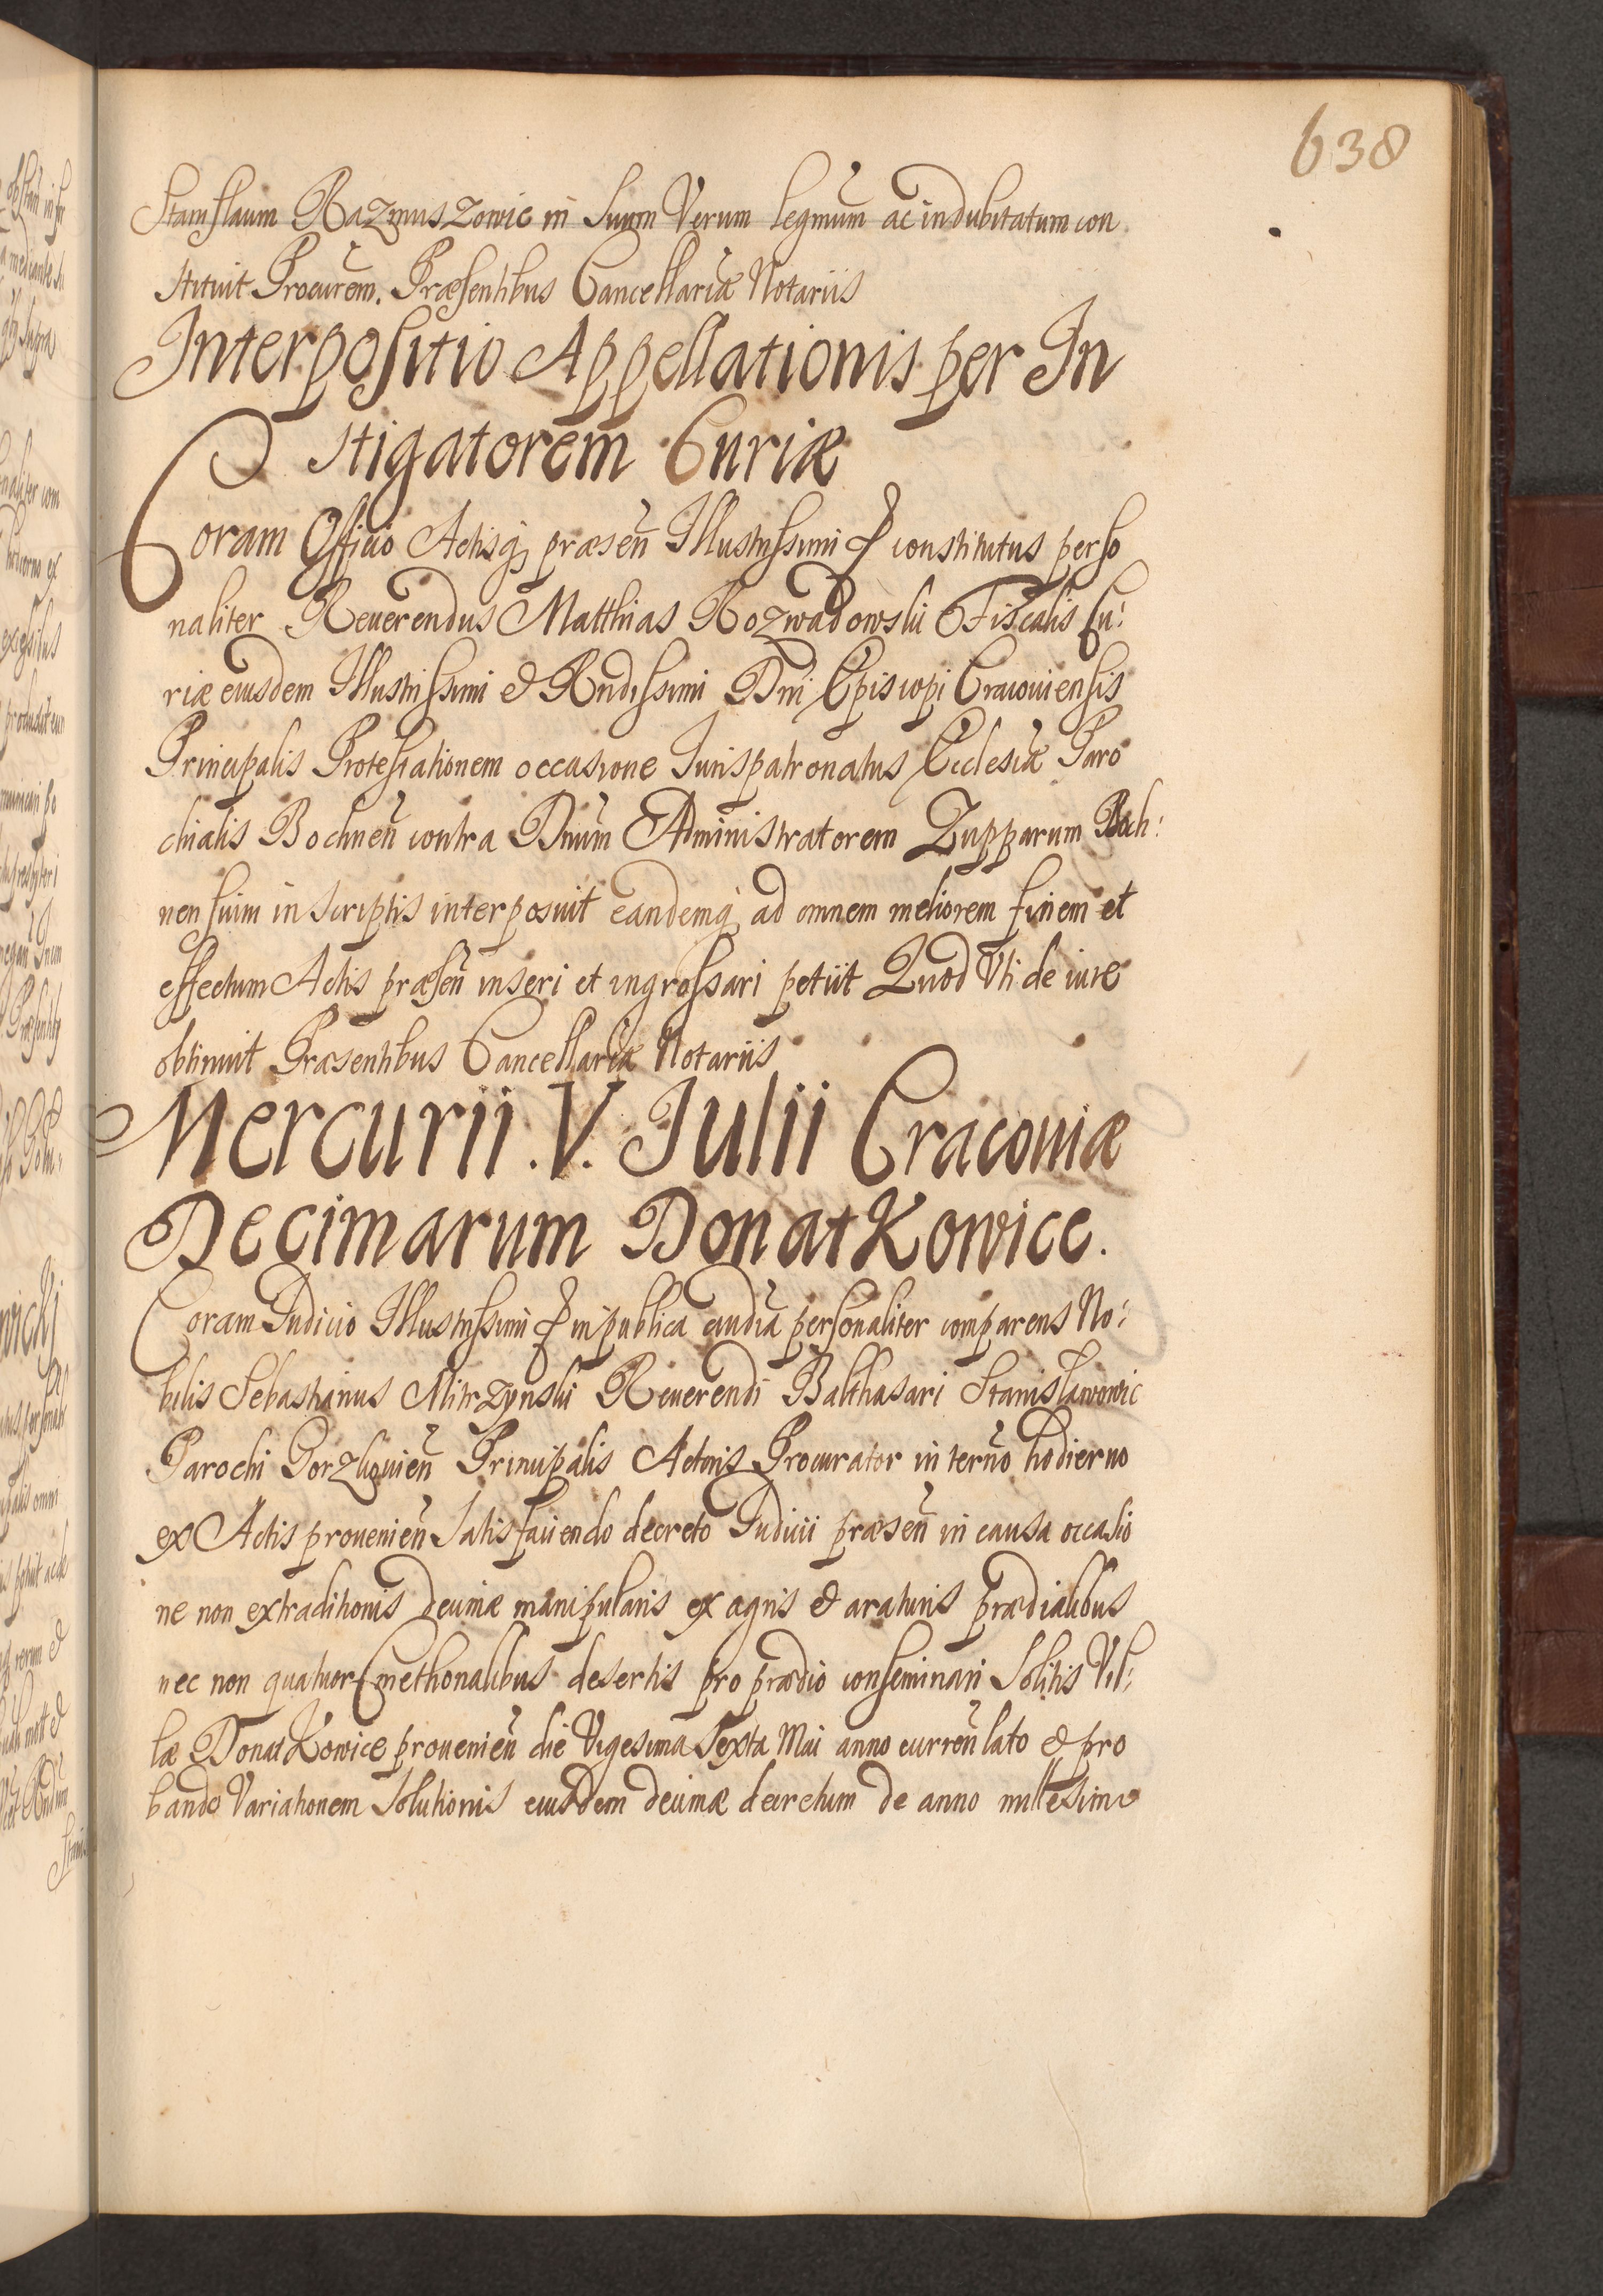 638
Stanislaum Razmuszowic in suum Verum legmum ac indubitatum con
stituit Procurem. Præsentibus Cancellariæ Notariis
Interpositio Appellationis per In
stigatorem Curiæ
Coram Officio Actisq præsen Illustrissimi & constitutus perso
naliter Reuerendus Matthias Rozwadowski Fiscalis Cu:
riæ eiusdem Illustrissimi & Rndissimi Dni Episcopi Cracouiensis
Principalis Protestationem occasione Iurispatronatus Ecclesiæ Paro
chialis Bochnen contra Dnum Administratorem Zupparum Boch:
nensium in scriptis interposuit eandemq ad omnem meliorem finem et
effectum Actis præsen inseri et ingrossari petiit Quod Vti de iure
obtinuit Præsentibus Cancellariæ Notariis
Mercurii .V. Iulii Cracoviæ
Decimarum Donatkowice.
Coram Iudicio Illustrissimi & in publica audia personaliter comparens No:
bilis Sebastianus Mitrzynski Reuerendi Balthasari Stanislawowic
Parochi Gorzkouien Principalis Actoris Procurator in terno hodierno
ex Actis prouenien satisfaciendo decreto Iudicii præsen in causa occasio
ne non extraditionis Decimæ manipularis ex agris & araturis prædialibus
nec non quatuor Cmethonalibus desertis pro prædio conseminari solitis Vil:
læ Donatkowice prouenien die Vigesima Sexta Maii anno curren lato & pro
bando Variationem Solutionis eiusdem decimæ decretum de anno millesimo